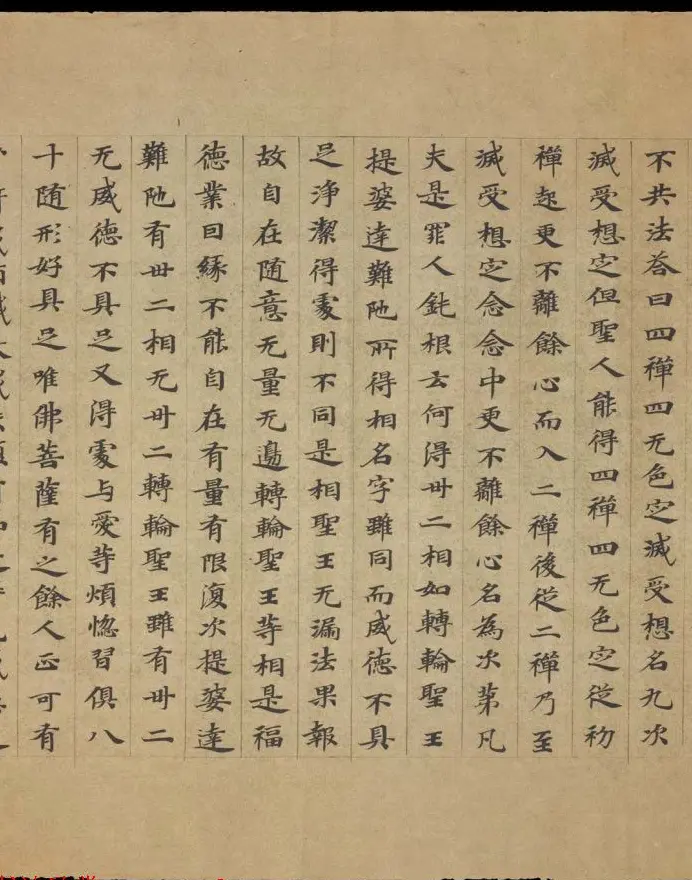 不共法荅曰四禪四无色㝎滅受想名九次
滅受想㝎但聖人能得四禪四无色㝎從初
禪起更不離餘心而入二禪後從二禪乃至
滅受想㝎念念中更不離餘心名為次第凡
夫是罪人鈍根云何得卅二相如轉輪聖王
提婆達難陁所得相名字雖同而威德不具
足淨潔得處則不同是相聖王无漏法果報
故自在随意无量无邊轉輪聖王等相是福
德業因緣不能自在有量有限復次提婆達
難陁有卅二相无卅二轉輪聖王雖有卅二
无威德不具足又得處与愛等煩惱習俱八
十随形好具足唯佛菩薩有之餘人正可有